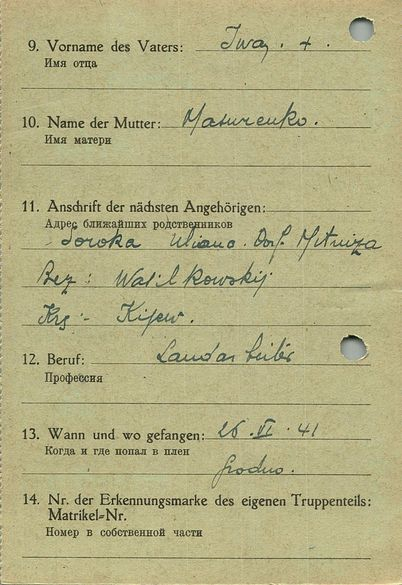 9. Vorname des Vaters: Iwan. +.
Имя отца
10. Name der Mutter: Masurenko.
Имя матери
11. Anschrift der nächsten Angehörigen:
Адрес ближайших родственников
Soroka Uliana. Dorf Mitniza
Bez: Wasilkowskij
Krs:- Kijew.
12. Beruf:
Профессия
13. Wann und wo gefangen: 26. VI. 41
Когда и где попал в плен
Grodno.
14. Nr. der Erkennungsmarke des eigenen Truppenteils:
Matrikel=Nr.
Номер в собственной части